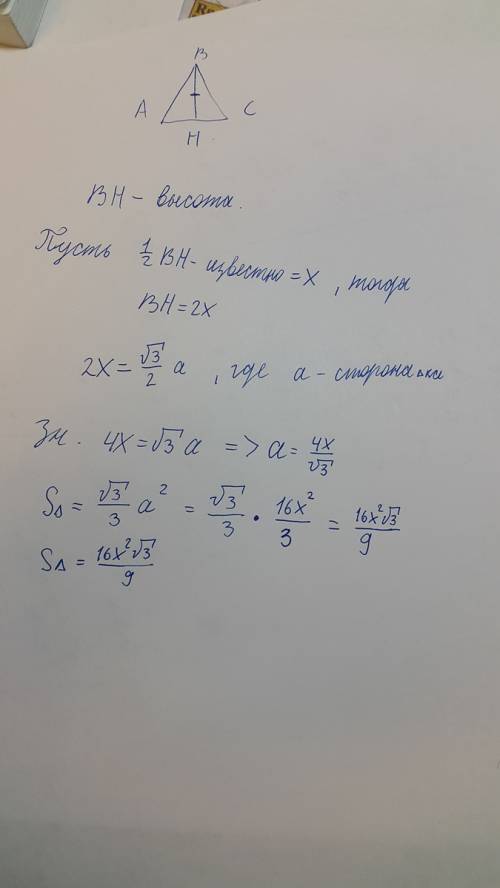 B
A C
H
BH - высота.
Пусть 1/2 BH - известно = x, тогда
BH = 2x
2x = √3/2 a, где a - сторона △ка
Зн. 4x = √3 a => a = 4x/√3
S△ = √3/3 a² = √3/3 · 16x²/3 = 16x²√3/9
S△ = 16x²√3/9